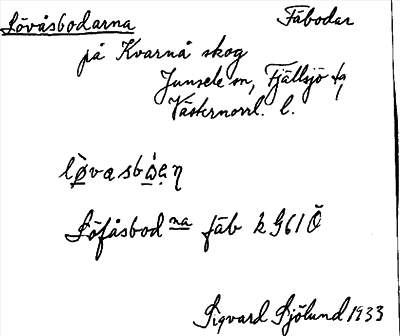 Lövåsbodarna Fäbodar
på Kvarnå skog
Junsele sn, Fjällsjö tg
Västernorrl. l.
lø̀vasbὼạη
Löfåsbodna fäb k G61Ö
Sigvard Sjölund 1933